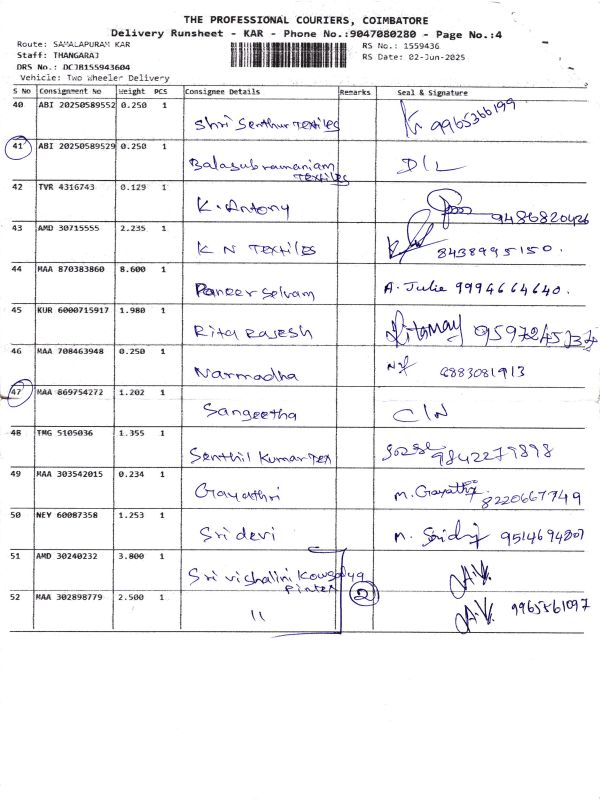 THE PROFESSIONAL COURIERS, COIMBATORE
Delivery Runsheet - KAR - Phone No.:9047080280 - Page No.:4
Route: SAMALAPURAM KAR
RS No.: 1559436
Staff: THANGARAJ
RS Date: 02-Jun-2025
DRS No.: DCJB155943604
Vehicle: Two Wheeler Delivery
S No Consignment No Weight PCS Consignee Details Remarks Seal & Signature
40 ABI 20250589552 0.250 1
Shri Senthur Textiles 9965366199
41 ABI 20250589529 0.250 1
Balasubramaniam D/L
Textiles
42 TVR 4316743 0.129 1
K. Antony 9486820426
43 AMD 30715555 2.235 1
K N Textiles 8438995150.
44 MAA 870383860 8.600 1
Paneer Selvam A. Julie 9994664640.
45 KUR 6000715917 1.980 1
Rita Rajesh
46 MAA 708463948 0.250 1
Narmadha 6883081913
47 MAA 869754272 1.202 1
Sangeetha C/N
48 TMG 5105036 1.355 1
Senthil Kumar Tex 9842279898
49 MAA 303542015 0.234 1
Gayathri M. Gayathri 8220667749
50 NEY 60087358 1.253 1
Sridevi 9514694807
51 AMD 30240232 3.800 1
Sri Vishalini Kowsalya
Pintex 2
52 MAA 302898779 2.500 1
11 A.V. 9965561097